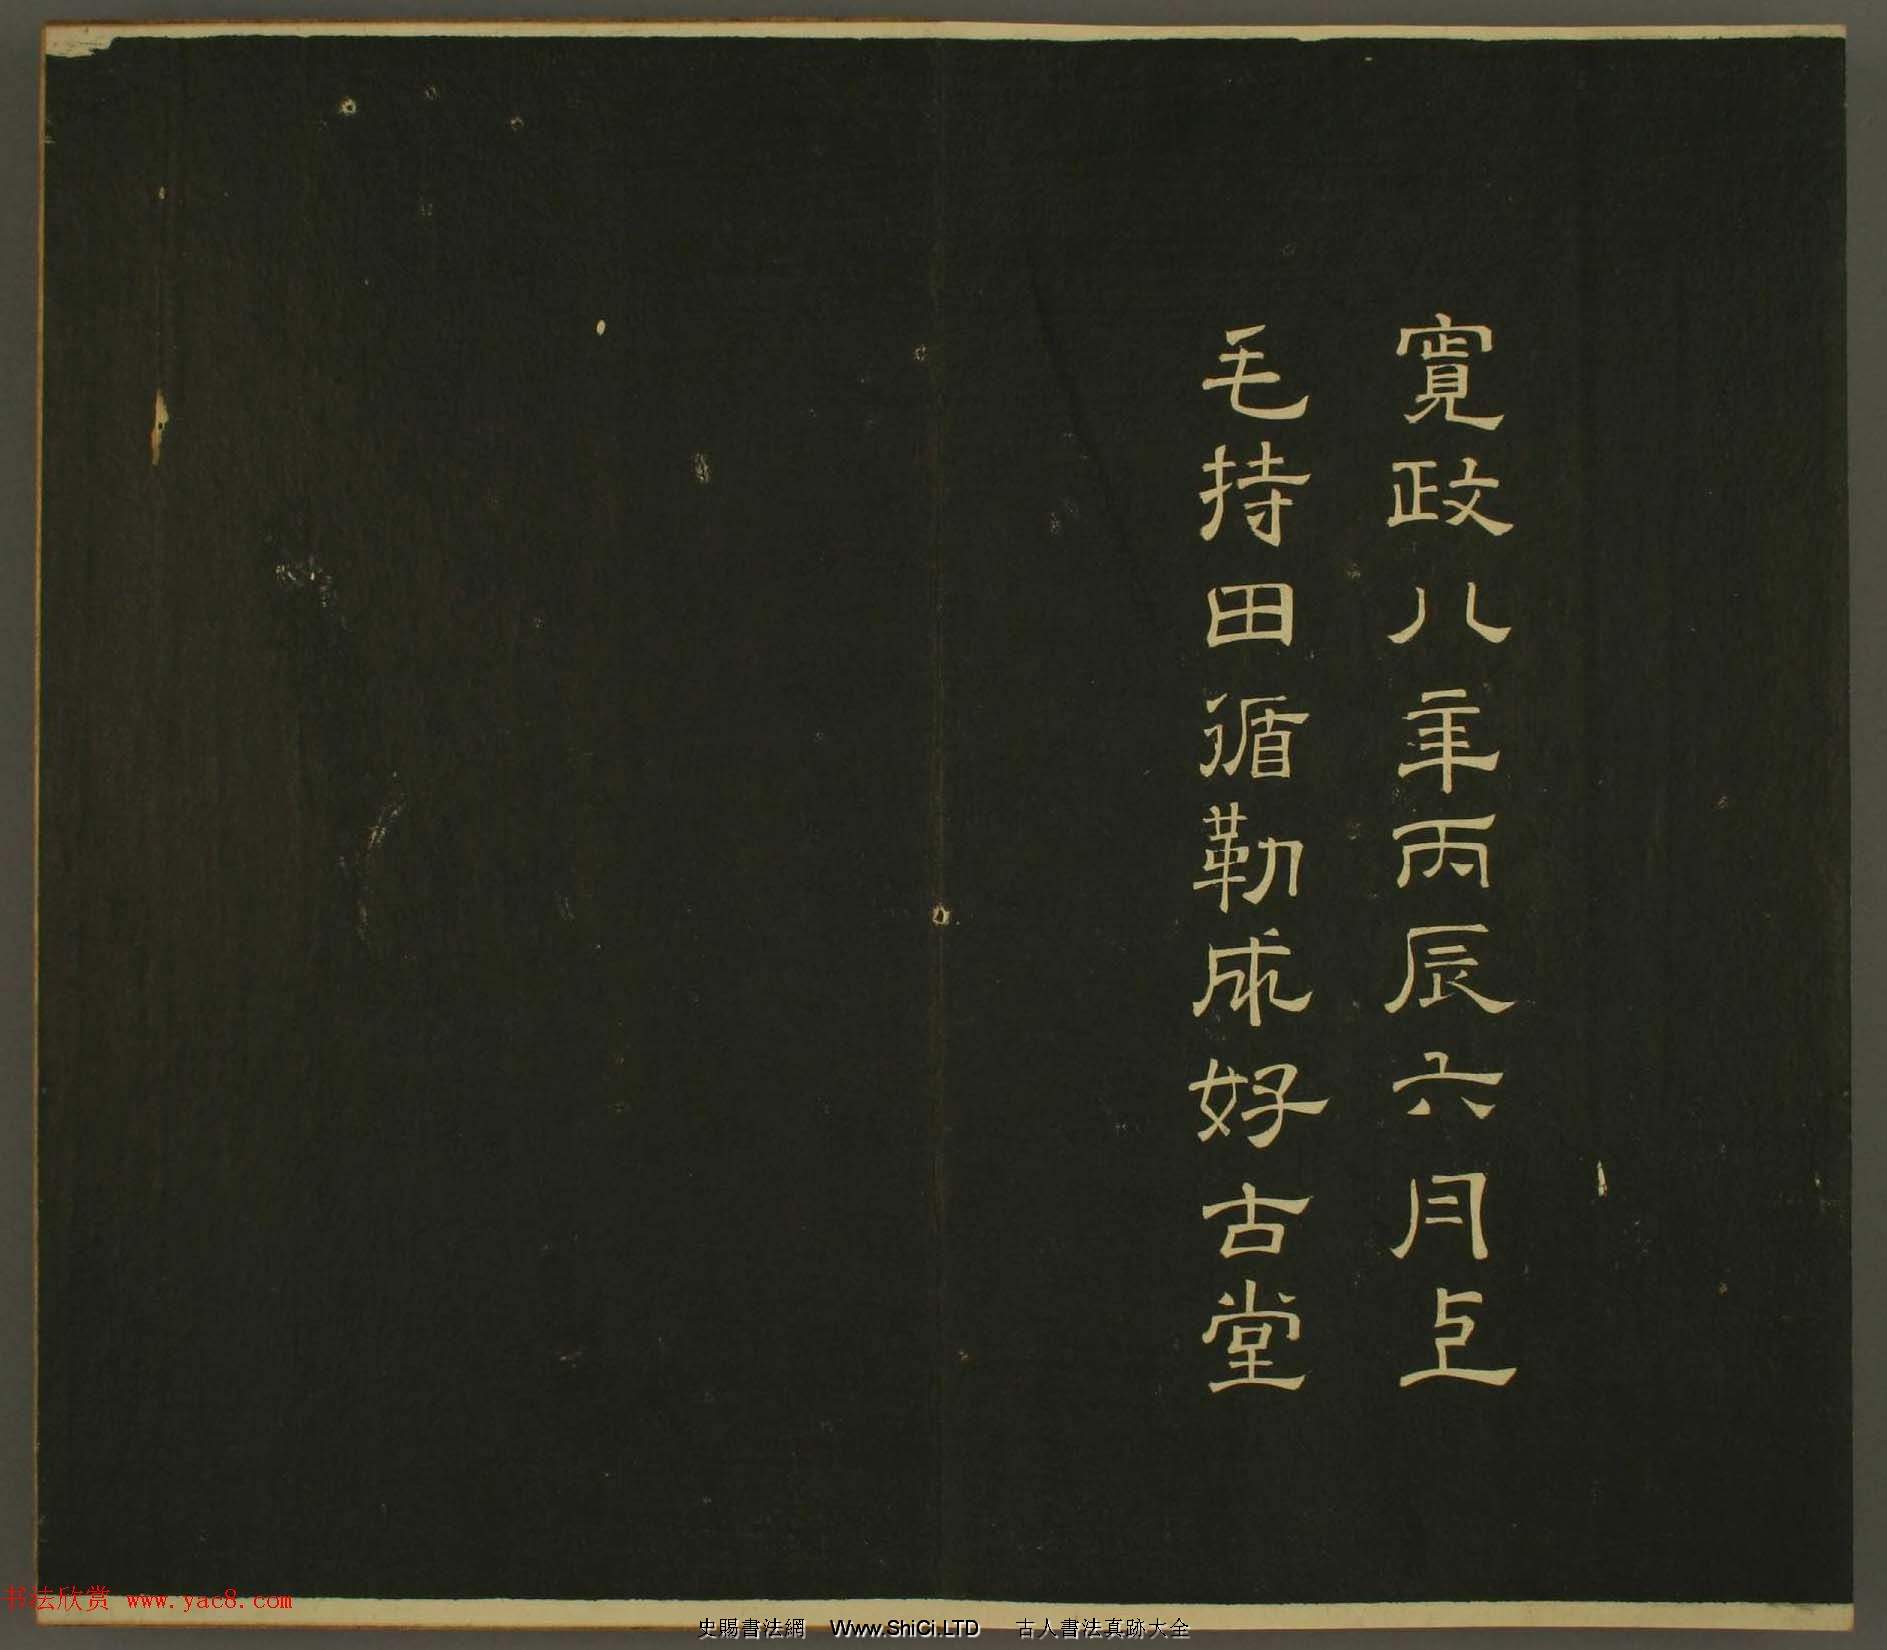 寛政八年丙辰六月上
毛持田循勒成好古堂
书法欣赏 www.yac8.com
史賜書法網 Www.ShiCi.LTD 古人書法真跡大全